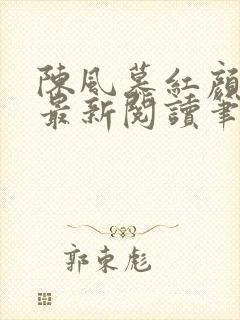 陳風慕紅顏
最新閱讀筆
郭東彪